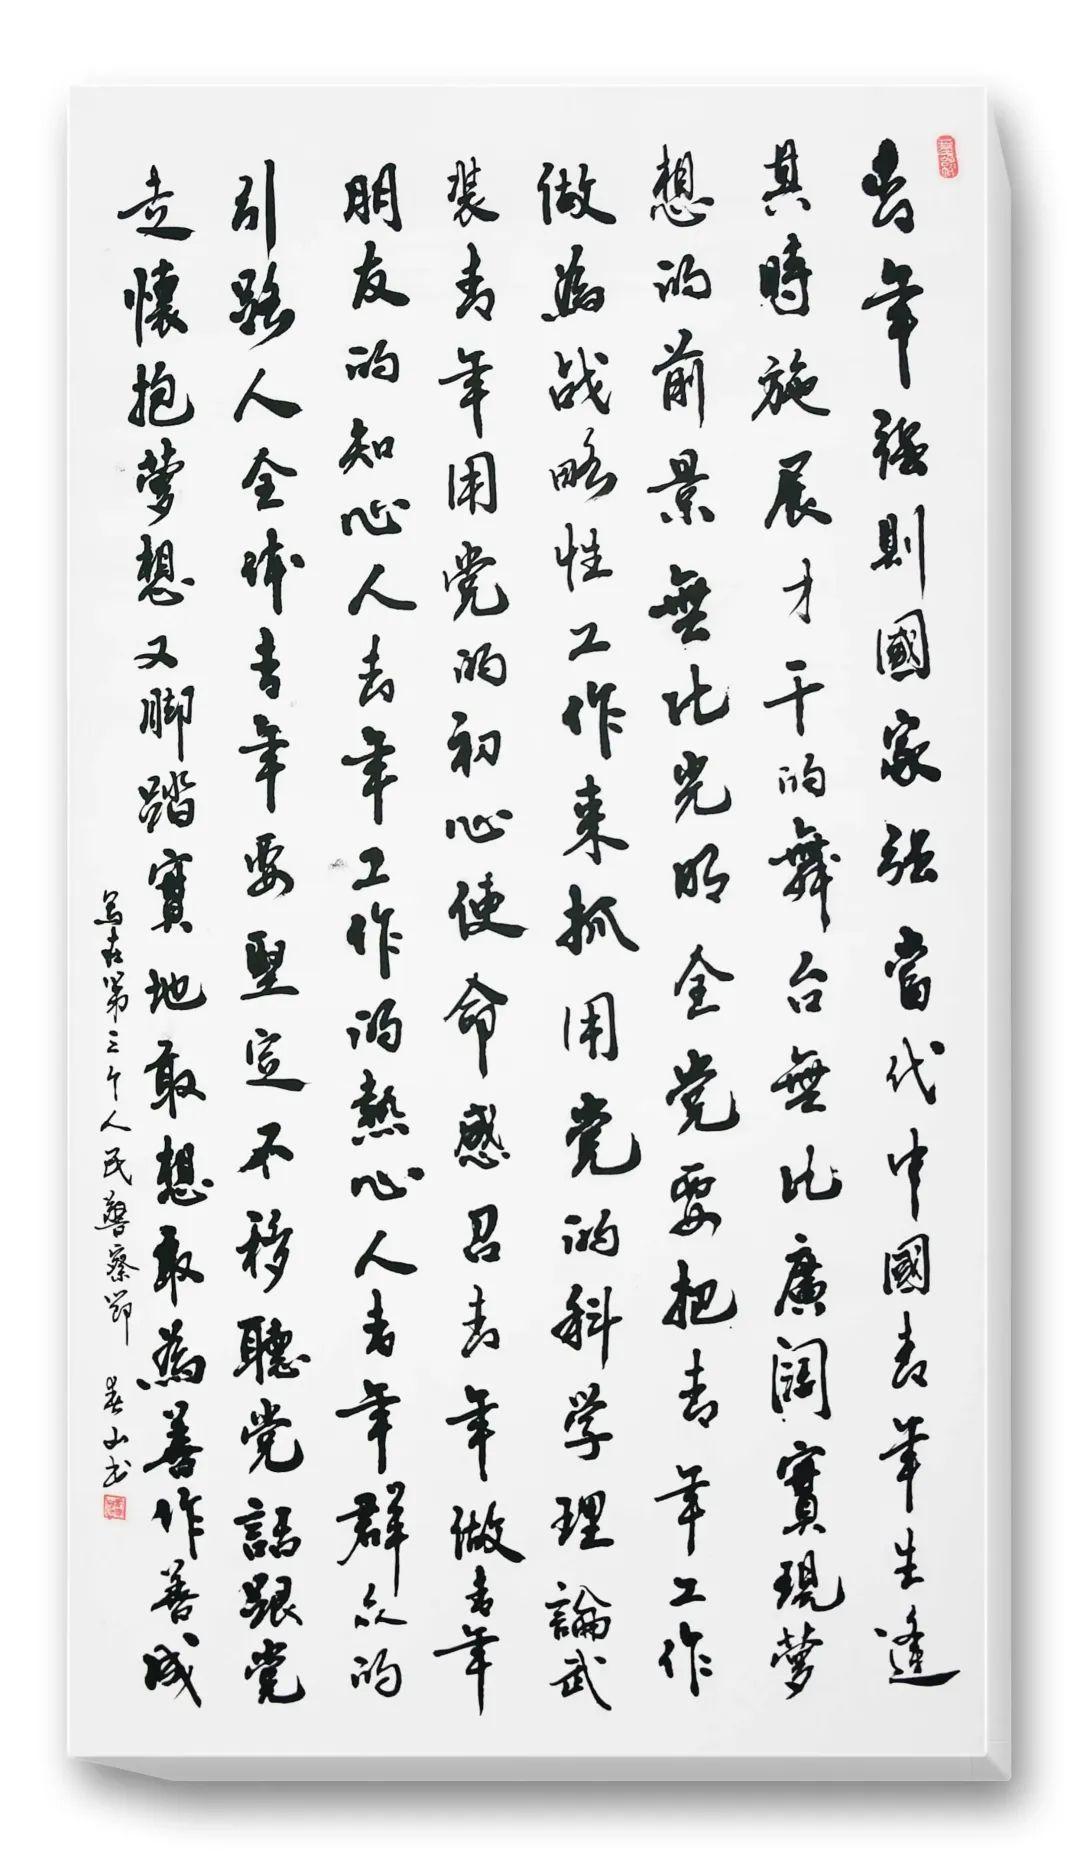 青年强則國家强當代中國青年生逢
其時施展才干的舞台無比廣闊實現夢
想的前景無比光明全党要把青年工作
做為战略性工作来抓用党的科学理論武
装青年用党的初心使命感召青年做青年
朋友的知心人青年工作的熱心人青年群众的
引路人全体青年要堅定不移聽党話跟党
走懷抱夢想又脚踏實地敢想敢為善作善成
写在第三个人民警察節 春山书